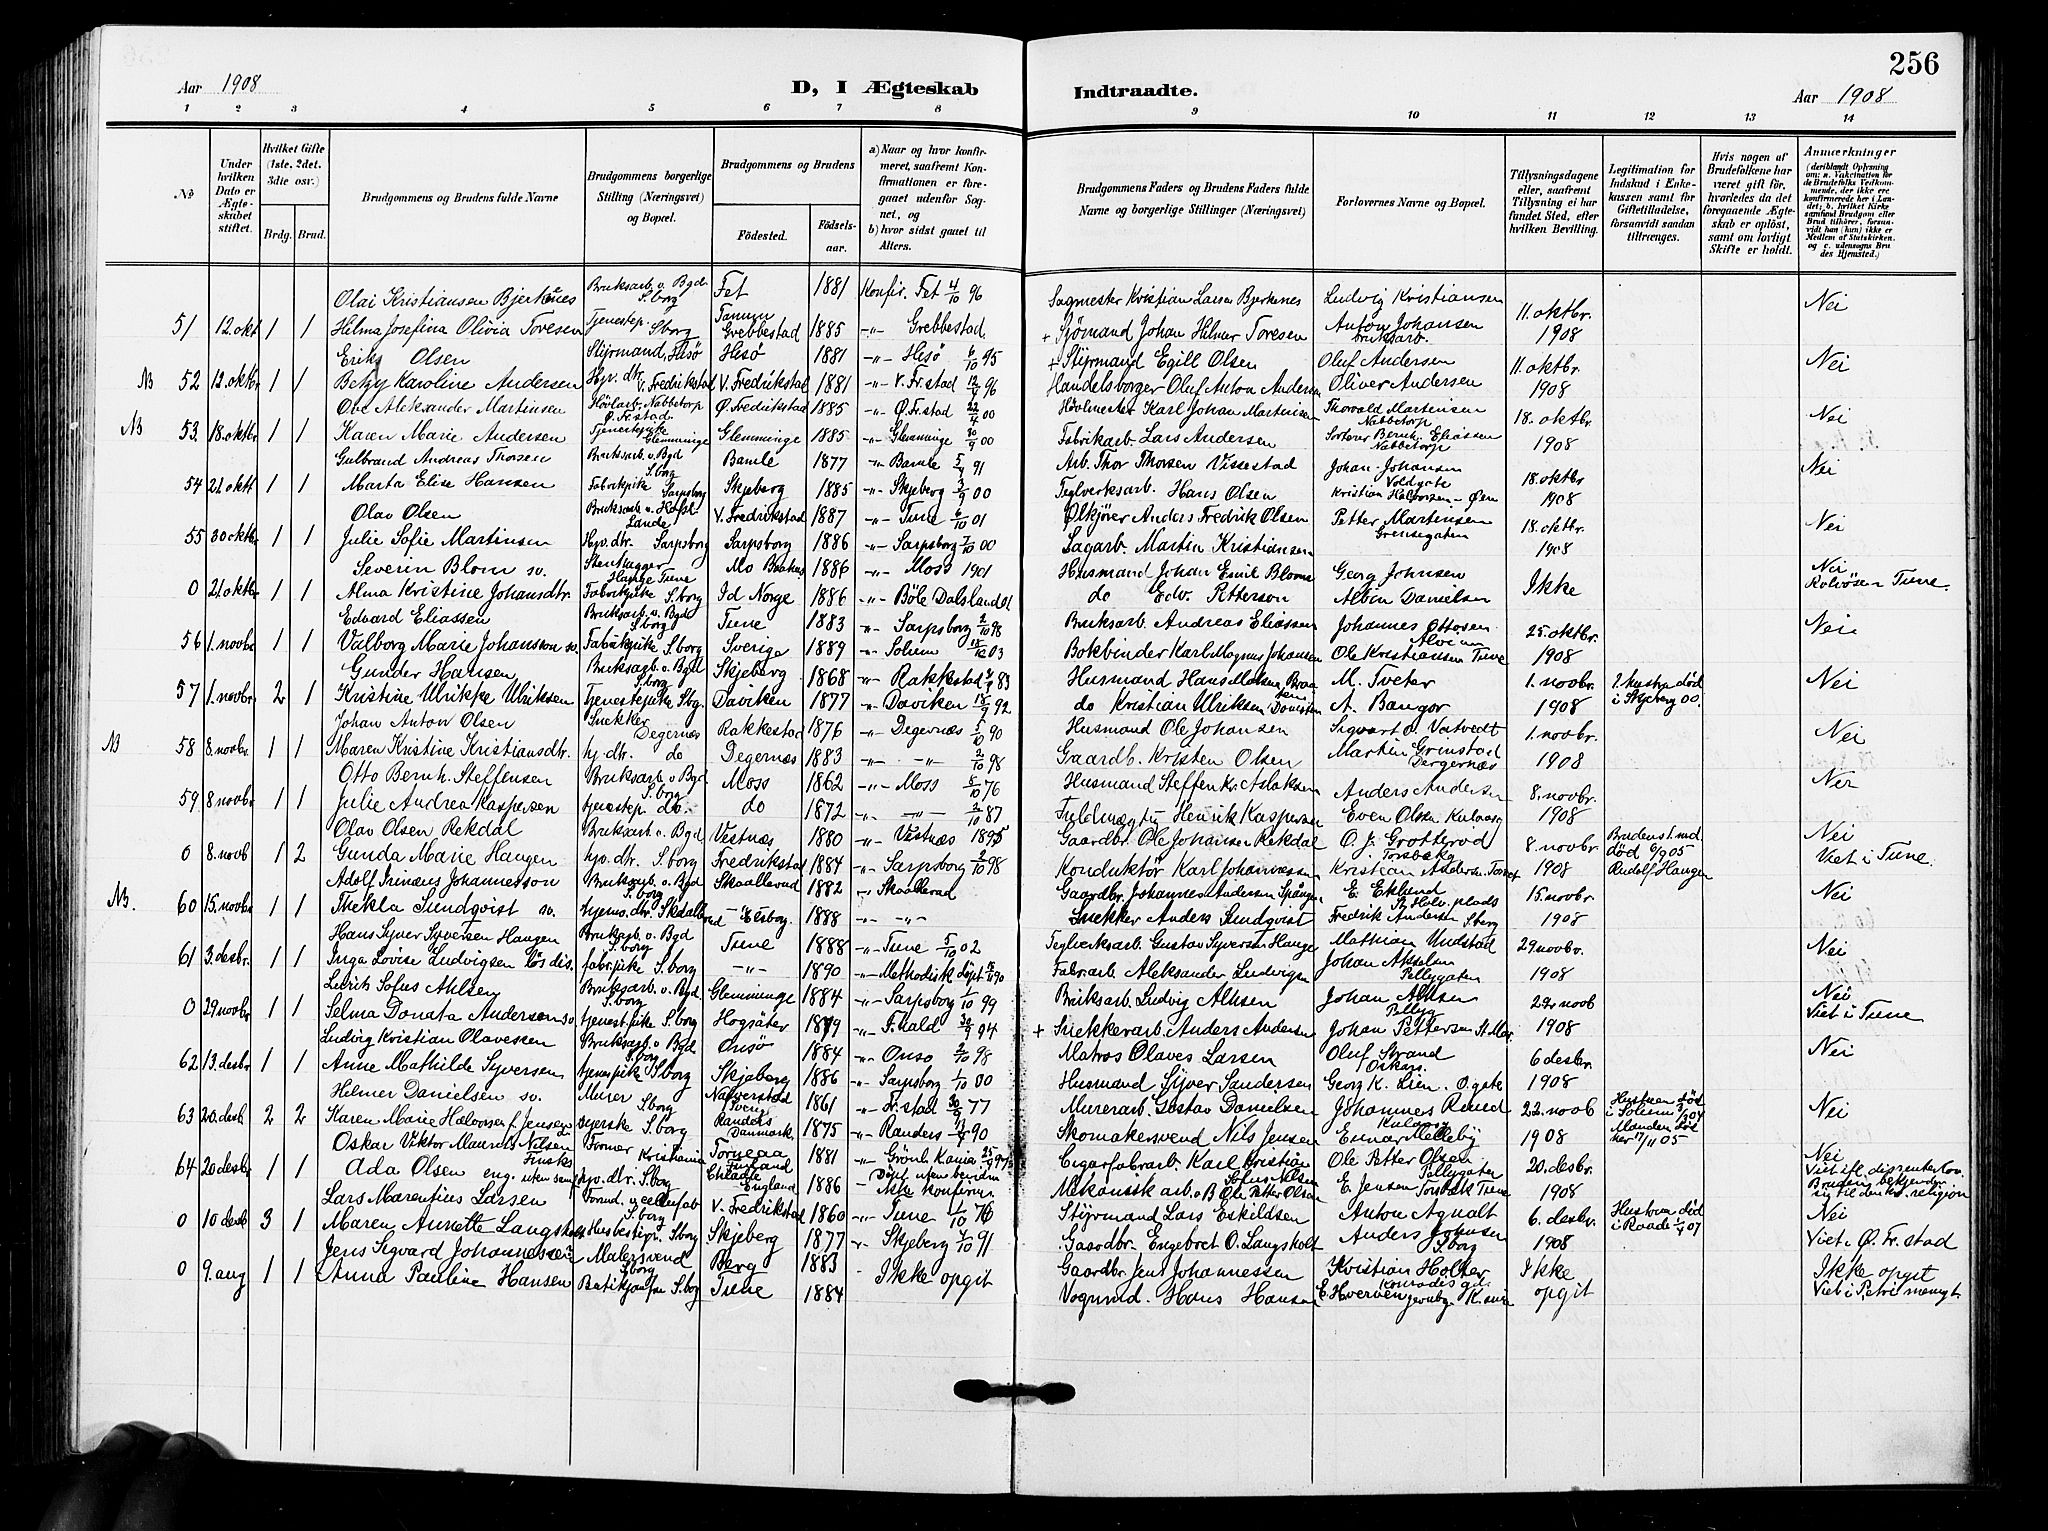 256
Aar 1908
D, I Ægteskab
Indtraadte.
Aar 1908
1 2 3 4 5 6 7 8 9 10 11 12 13 14
No
Under hvilken Dato er Ægteskabet stiftet.
Hvilket Gifte (1ste, 2det, 3die osv.)
Brdg. Brud.
Brudgommens og Brudens fulde Navne
Brudgommens borgerlige Stilling (Næringsvei) og Bopæl.
Brudgommens og Brudens
Fødested. Fødselsaar.
a) Naar og hvor konfirmeret, saafremt Konfirmationen er foregaaet udenfor Sognet, og
b) hvor sidst gaaet til Alters.
Brudgommens Faders og Brudens Faders fulde Navne og borgerlige Stillinger (Næringsvei)
Forlovernes Navne og Bopæl.
Tillysningsdagene eller, saafremt Tillysning ei har fundet Sted, efter hvilken Bevilling.
Legitimation for Indskud i Enkekassen samt for Giftetilladelse, forsaavidt saadan tiltrænges.
Hvis nogen af Brudefolkene har været gift før, hvorledes da det foregaaende Ægteskab er opløst, samt om lovligt Skifte er holdt.
Anmærkninger
Olai Kristiansen Bjerkenes Bruksarb. v. Bgd S.borg Fet 1881 Konfir. Fet 4/10 96 Sagmester Kristian Larsen Bjerkenes Ludvig Kristiansen 11. oktbr. Nei
51 12. okt 1 1 Helma Josefina Olivia Toresen Tjenestep. S.borg Tanum Grebbestad 1885 -"- Grebbestad + Sjømand Johan Helmer Toresen Anton Johansen bruksarb. 1908
Erik Olsen Styrmand, Hisø Hisø 1881 -"- Hisø 6/10 95 + Styrmand Egill Olsen Oluf Andersen 11. oktbr. Nei
NB 52 12. oktbr 1 1 Betzy Karoline Andersen Hjv. dtr. V. Fredrikstad V. Fredrikstad 1881 -"- V. Fr.stad 12/4 96 Handelsborger Oluf Anton Andersen Oliver Andersen 1908
Ove Aleksander Martinsen Høvlarb. Nabbetorp Ø. Fr.stad Ø. Fredrikstad 1885 -"- Ø. Fr.stad 22/4 00 Høvlmester Karl Johan Martinsen Thorvald Martinsen Nabbetorp 18. oktbr. Nei
NB 53. 18. oktbr 1 1 Karen Marie Andersen Tjenestepike Glemminge Glemminge 1885 -"- Glemminge 30/9 00 Fabrikarb. Lars Andersen Sortover Bernh. Eliassen Nabbetorp 1908
Gulbrand Andreas Thorsen Bruksarb. v. Bgd S.borg Bamle 1877 -"- Bamle 5/4 91 Arb. Thor Thorsen Vissestad Johan Johansen Voldgate 18. oktbr Nei
54 21. okt 1 1 Marta Elise Hansen Fabrikpike Sarpsborg Skjeberg 1885 -"- Skjeberg 3/9 00 Teglverksarb. Hans Olsen Kristian Halvorsen 1908
Olav Olsen Bruksarb. v. Hafsl. Lande V. Fredrikstad 1887 -"- Tune 6/10 01 Ølkjører Anders Fredrik Olsen Petter Martinsen Grensegaten 18. oktbr. Nei
55 30 oktbr 1 1 Julie Sofie Martinsen Hjv. dtr. Sarpsborg Sarpsborg 1886 -"- Sarpsborg 7/10 00 Sagarb. Martin Kristiansen 1908
Severin Blom sv. Stenhugger Hauge Tune Mo Baahus 1886 -"- Moss 1901 Husmand Johan Emil Blom Georg Johnsen Ikke Nei
0 21. oktbr 1 1 Alma Kristine Johansdtr. Fabrikpike S.borg Id Norge 1886 -"- Böle Dalsland do Edv. Petterson Albin Danielsen Rolvsøen Tune.
Edvard Eliassen Bruksarb. v. Bgd S.borg Tune 1883 -"- Sarpsborg 2/10 98 Bruksarb. Andreas Eliassen Johannes Ottosen 25. oktbr. Nei
56 1. novbr 1 1 Valborg Marie Johansson sv. Fabrikpike S.borg Sverige 1889 -"- Soleim 18/10 03 Bokbinder Karl Magnus Johansen Ole Kristiansen Tune 1908
Gunder Hansen Bruksarb. v. Bgd S.borg Skjeberg 1868 -"- Rakkestad 83 Husmand Hans M. Olsen Braaten M. Tveter 1. novbr. 1. hustru død i Skjeberg 00. Nei
57 1. novbr 2 1 Kristine Ulrikke Ulriksen Tjenestepike Sbg. Daviken 1877 -"- Daviken 18/9 92 do Kristian Ulriksen Daviken A. Bangor 1908
Johan Anton Olsen Snekker Degernes Rakkestad 1876 -"- Degernæs 5/10 90 Husmand Ole Johansen Sigvart O. Vatvedt 1. novbr. Nei
NB 58 8. novbr 1 1 Maren Kristine Kristiansdtr. hj. dtr. do Degernæs 1883 -"- -"- 2/10 98 Gaardb. Kristen Olsen Martin Grimstad Dergernæs 1908
Otto Bernh. Steffensen Bruksarb. v. Bgd S.borg Moss 1862 -"- Moss 8/10 76 Husmand Steffen Kr. Aslaksen Anders Andersen 8. novbr. Nei
59 8 novbr 1 1 Julie Andrea Kaspersen tjenestep. do. do 1872 -"- -"- 2/10 87 Fuldmægtig Henrik Kaspersen Even Olsen Kulaas 1908
Olav Olsen Rekdal Bruksarb. v. Bgd Vestnæs 1880 -"- Vestnæs 1895 Gaardbr. Ole Johansen Rekdal O. J. Grotterød Torsbækg 8. novbr Brudens 1. md død 6/9 05 Nei
0 8. novb 1 2 Gunda Marie Haugen hjv. dtr. S.borg Fredrikstad 1884 -"- Sarpsborg 2/10 98 Konduktør Karl Johannessen Kristian Andersen 1908 Rudolf Haugen Viet i Tune.
Adolf Irinæus Johannesson Bruksarb. v. Bgd S.borg Skaallerud 1882 -"- Skaallerud Gaardbr. Johannes Andersen Spången E. Eklund St. Halv. plads 15. novbr Nei
NB. 60 15. novbr 1 1 Thekla Sundqvist sv. hjemv. dtr. -"- Elsborg. 1888 -"- -"- Snekker Anders Sundqvist Fredrik Andersen S.borg 1908
Hans Syver Syversen Haugen Bruksarb. v. Bgd S.borg Tune 1888 -"- Tune 5/10 02 Teglverksarb. Gustav Syversen Haugen Mathian Undstad 29 novbr. Nei
61 3. desbr. 1 1 Inga Lovise Ludvigsen løs dis. fabrpike S.borg -"- 1890 -"- Methodisk døpt 90 Fabrarb. Aleksander Ludvigsen Johan Akselsen Pellygaten 1908
Lurits Sofus Ahlsen Bruksarb. v. Bgd S.borg Glemminge 1884 -"- Sarpsborg 1/10 99 Bruksarb. Ludvig Alhsen Johan Alhsen Pellyg. 22 novb Nei
0 29 novbr 1 1 Selma Donata Andersen sv. tjenestpike S.borg Hogsäter 1879 -"- F.hald 30/9 94 + Snekkerarb. Anders Andersen Johan Pettersen St. Mar. 1908 Viet i Tune
Ludvig Kristian Olavesen Bruksarb. v Bgd S.borg Onsø 1884 -"- Onsø 2/10 98 Matros Olaves Larsen Oluf Strand Oskarsg. 6 desbr. Nei
62 13. desbr 1 1 Anne Mathilde Syversen tjenerpike S.borg Skjeberg 1886 -"- Sarpsborg 1/10 00 Husmand Syver Sandersen Georg K. Lien. O.gate 1908
Helmer Danielsen sv. Murer S.borg Naverstad Sverig 1861 -"- Fr.stad 30/9 77 Murerarb. Gustav Danielsen Johannes Rused Kulaasg 22. novb Hustruen død i Soleim 04 Nei
63 20. desb 2 2 Karen Marie Halvorsen f. Jensen syerske S.borg Randers Danmark. 1875 -"- Randers 90 Skomakersvend Nils Jensen Einar Melleby 1908 Manden død 17/11 05
Oskar Viktor Mauritz Nilsen Finsk s Former Kristiania Torneaa Finland 1881 -"- Grønl. Kania 25/9 Cigarfabrarb. Karl Kristian Ole Petter Olsen Pellygaten 20. desbr. Nei
64 20 desbr 1 1 Ada Olsen eng. uten sem hjv. dtr. S.borg England 1886 Ikke konfirm. Mekanisk arb. v B Ole Petter Olsen E. Jensen Torsbæk Tune 1908 Viet efl. dissenterlov. Bruden bekjender sig til den kr. religion
Lars Marentius Larsen S.borg V. Fredrikstad 1860 -"- Tune 1/10 76 Styrmand Lars Eskildsen Anton Agnalt 6. desbr. Hustruen død i Raade 07 Nei
0 10 desb 3 1 Maren Annette Langsholt Husbestyr. S.borg Skjeberg 1877 -"- Skjeberg 4/10 91 Gaardbr. Engebret O. Langsholt Anders Johnsen S.borg 1908 Viet i Ø. Fr.stad
Jens Sigvard Johannessen Malersvend S.borg Berg 1883 Ikke opgit Gaardbr Jens Johannessen Kristian Holter Ikke Ikke opgit
0 9. aug 1 1 Anna Pauline Hansen Butikjomfru S.borg Tune 1884 Vognmd. Hans Hansen E. Hverven opgit Viet i Petri menigt.